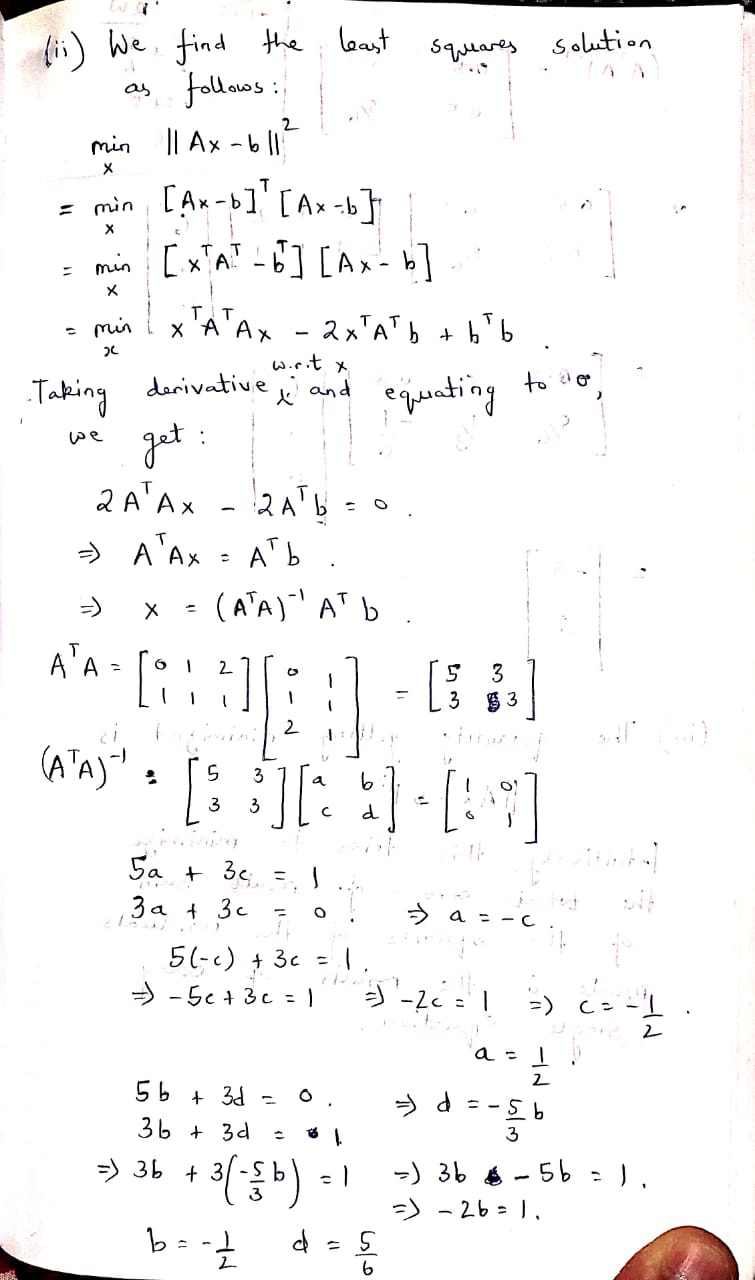 (ii) We find the least squares solution
as follows:
min ‖Ax - b‖²
x
= min [Ax - b]ᵀ [Ax - b]
x
= min [xᵀAᵀ - bᵀ] [Ax - b]
x
= min xᵀAᵀAx - 2xᵀAᵀb + bᵀb.
x
Taking derivative w.r.t x and equating to 0,
we get:
2AᵀAx - 2Aᵀb = 0.
⇒ AᵀAx = Aᵀb.
⇒ x = (AᵀA)⁻¹ Aᵀb.
AᵀA = [0 1 2; 1 1 1] [0 1; 1 1; 2 1] = [5 3; 3 3]
(AᵀA)⁻¹ : [5 3; 3 3] [a b; c d] = [1 0; 0 1]
5a + 3c = 1
3a + 3c = 0. ⇒ a = -c.
5(-c) + 3c = 1.
⇒ -5c + 3c = 1 ⇒ -2c = 1 ⇒ c = -1/2.
a = 1/2.
5b + 3d = 0. ⇒ d = -5/3 b
3b + 3d = 1.
⇒ 3b + 3(-5/3 b) = 1 ⇒ 3b - 5b = 1.
⇒ -2b = 1.
b = -1/2 d = 5/6